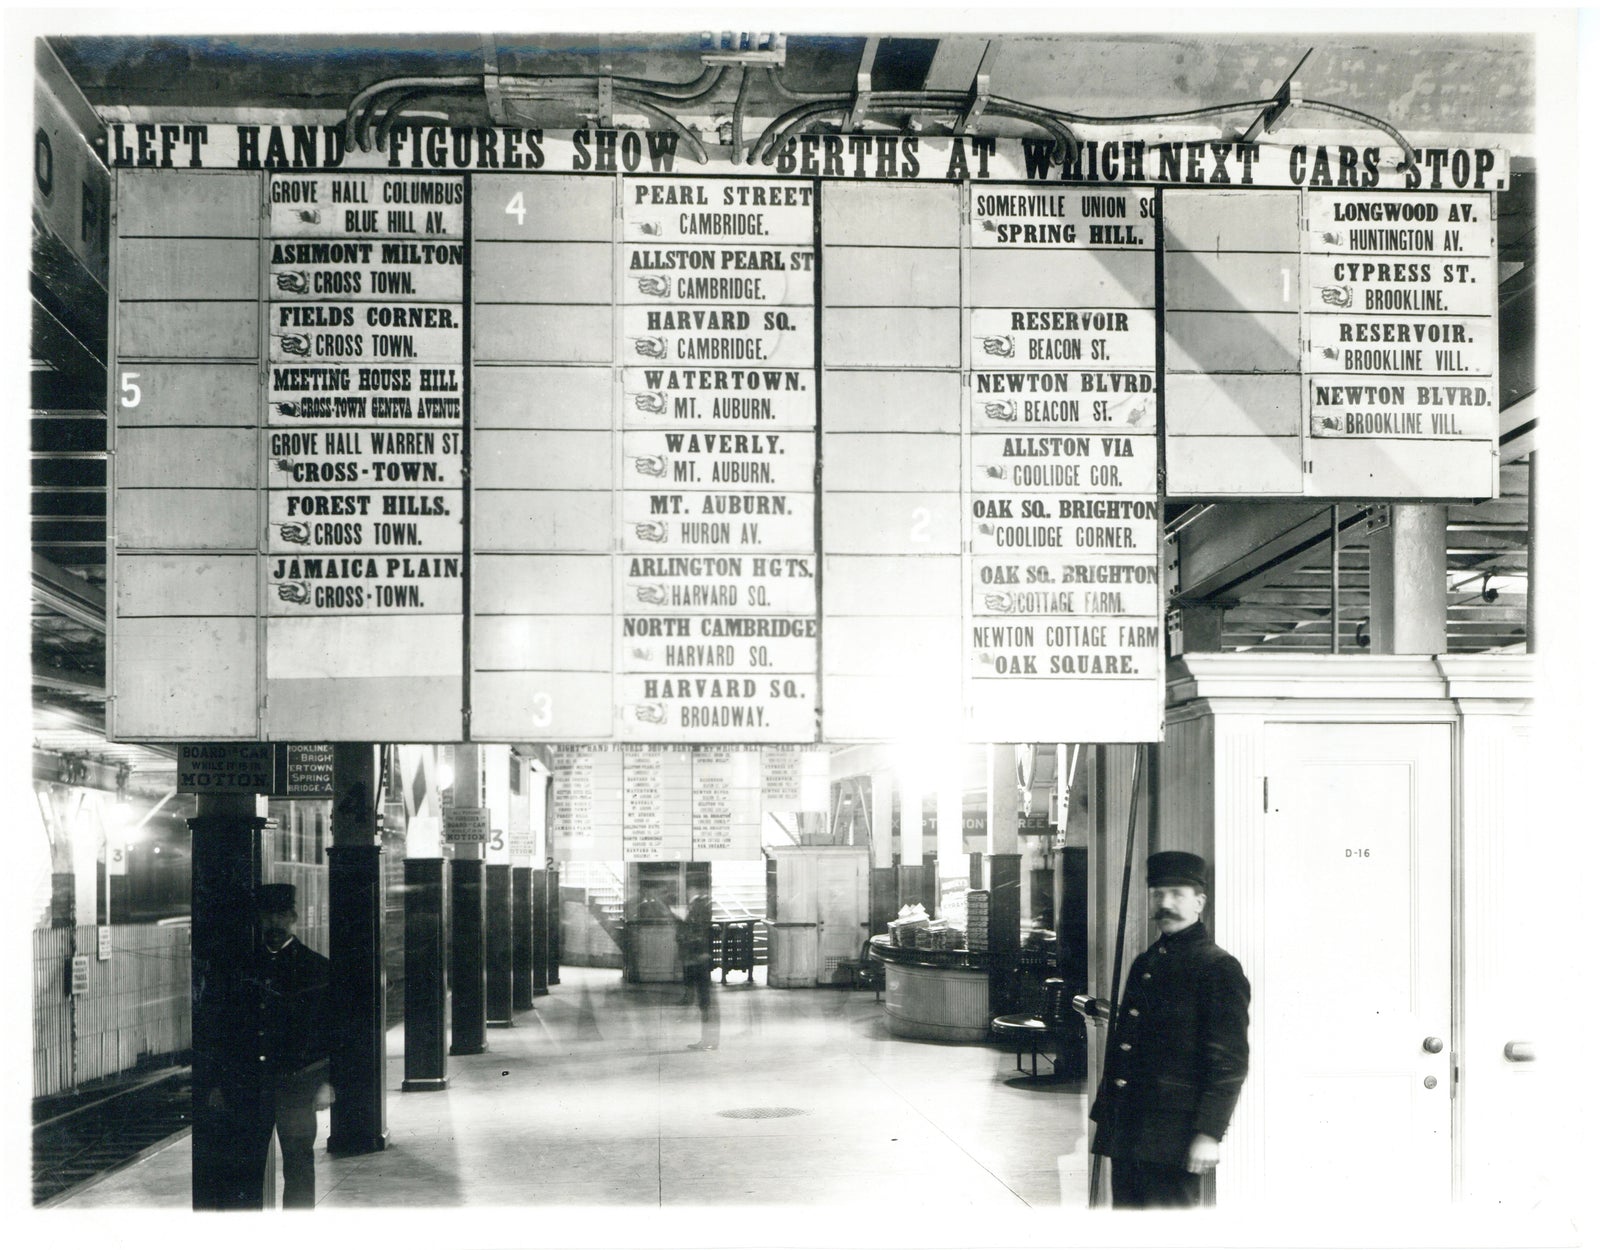 LEFT HAND FIGURES SHOW BERTHS AT WHICH NEXT CARS STOP.
GROVE HALL COLUMBUS
BLUE HILL AV.
ASHMONT MILTON
CROSS TOWN.
FIELDS CORNER.
CROSS TOWN.
5
MEETING HOUSE HILL
CROSS-TOWN GENEVA AVENUE
GROVE HALL WARREN ST.
CROSS-TOWN.
FOREST HILLS.
CROSS TOWN.
JAMAICA PLAIN.
CROSS-TOWN.
4
PEARL STREET
CAMBRIDGE.
ALLSTON PEARL ST
CAMBRIDGE.
HARVARD SQ.
CAMBRIDGE.
WATERTOWN.
MT. AUBURN.
WAVERLY.
MT. AUBURN.
MT. AUBURN.
HURON AV.
ARLINGTON HGTS.
HARVARD SQ.
NORTH CAMBRIDGE
HARVARD SQ.
3
HARVARD SQ.
BROADWAY.
SOMERVILLE UNION SQ
SPRING HILL.
RESERVOIR
BEACON ST.
NEWTON BLVRD.
BEACON ST.
ALLSTON VIA
COOLIDGE COR.
2
OAK SQ. BRIGHTON
COOLIDGE CORNER.
OAK SQ. BRIGHTON
COTTAGE FARM.
NEWTON COTTAGE FARM
OAK SQUARE.
LONGWOOD AV.
HUNTINGTON AV.
1
CYPRESS ST.
BROOKLINE.
RESERVOIR.
BROOKLINE VILL.
NEWTON BLVRD.
BROOKLINE VILL.
BOARD CAR
WHILE IT IS IN
MOTION
OOKLINE-
BRIGHT
ERTOWN
SPRING
BRIDGE-A
RIGHT HAND FIGURES SHOW BERTHS AT WHICH NEXT CARS STOP.
4
3
3
2
MOTION
D-16